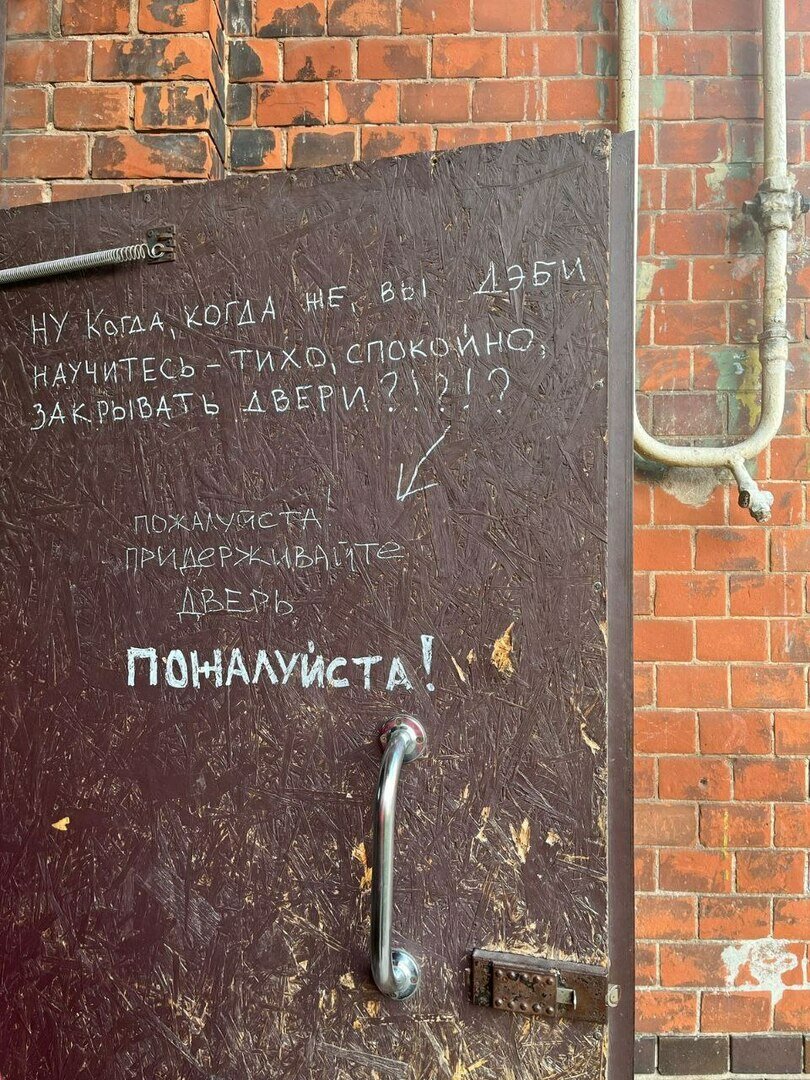 НУ КОГДА, КОГДА ЖЕ, ВЫ ДЭБИ
НАУЧИТЕСЬ - ТИХО, СПОКОЙНО,
ЗАКРЫВАТЬ ДВЕРИ?!?!?
ПОЖАЛУЙСТА!
ПРИДЕРЖИВАЙТЕ
ДВЕРЬ
ПОЖАЛУЙСТА!